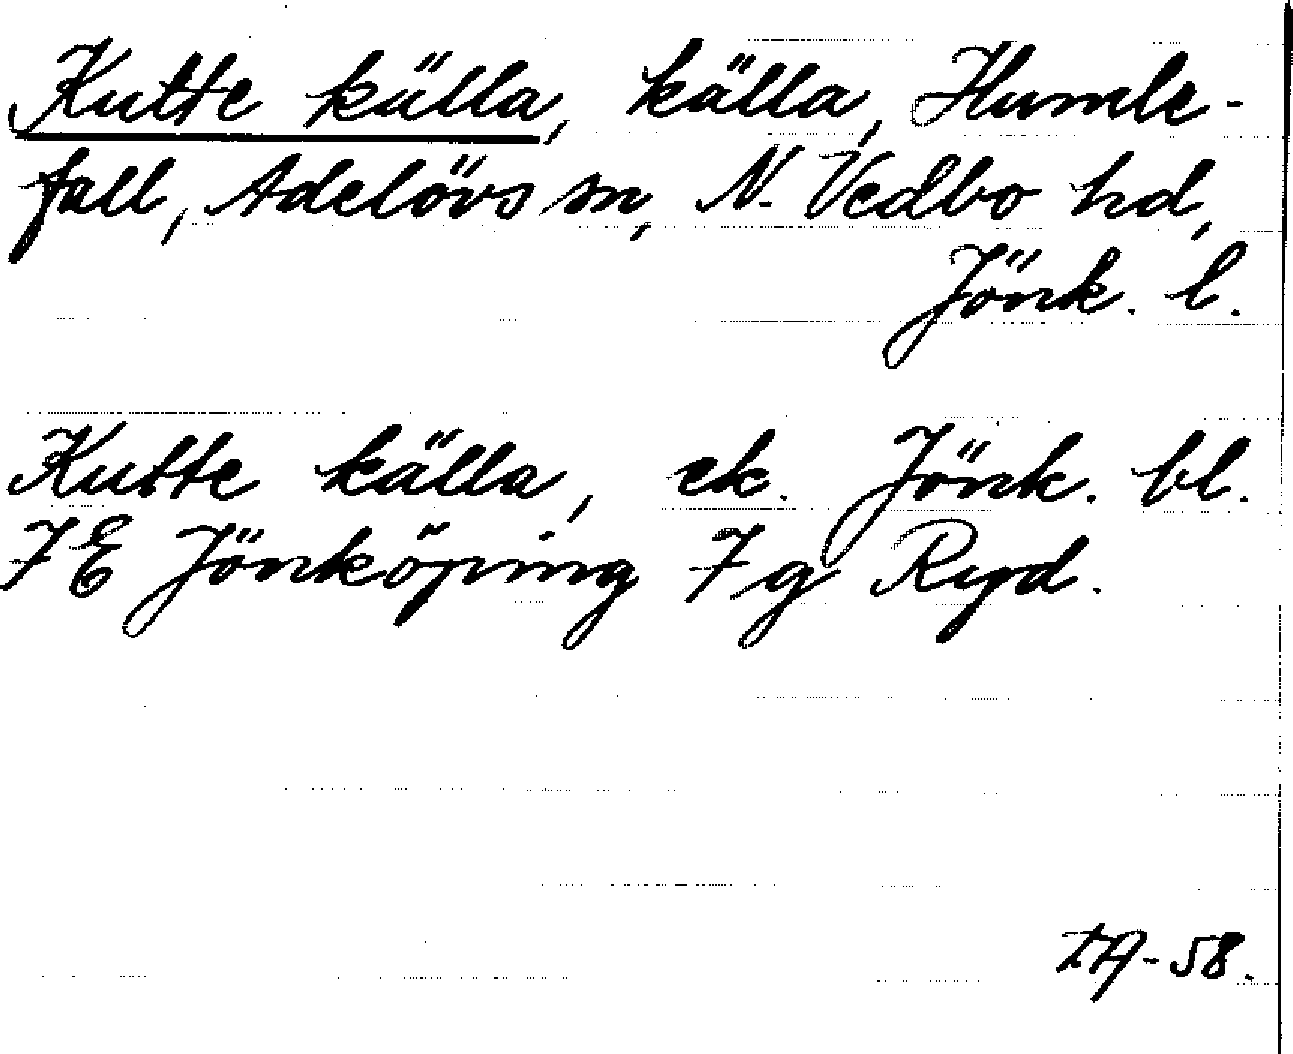 Kutte källa, källa, Humle-
fall, Adelövs sn, N. Vedbo hd,
Jönk. l.
Kutte källa, ek. Jönk. bl.
7 E Jönköping 7 g Ryd.
IA-58.